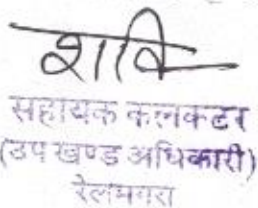 शक्ति
सहायक कलक्टर
(उप खण्ड अधिकारी)
रेलमगरा